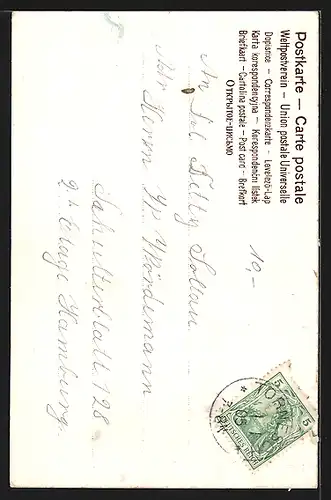 Postkarte — Carte postale
Weltpostverein — Union postale Universelle
Dopisnice — Correspondenzkarte - Levelező-Lap
Karta korespondencyjna — Korespondenční listek
Briefkaart — Cartolina postale — Post card — Brefkort
Открытое-письмо
An Frl. Betty Sollau
Adr Herrn W. Wördemann
Schulterblatt 128
2te Etage Hamburg.
10,-
5
5